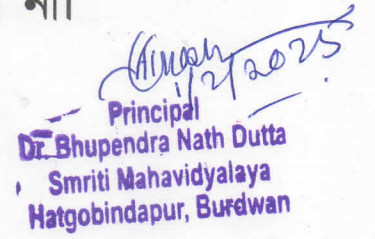 1/2/2025
Principal
Dr. Bhupendra Nath Dutta
Smriti Mahavidyalaya
Hatgobindapur, Burdwan